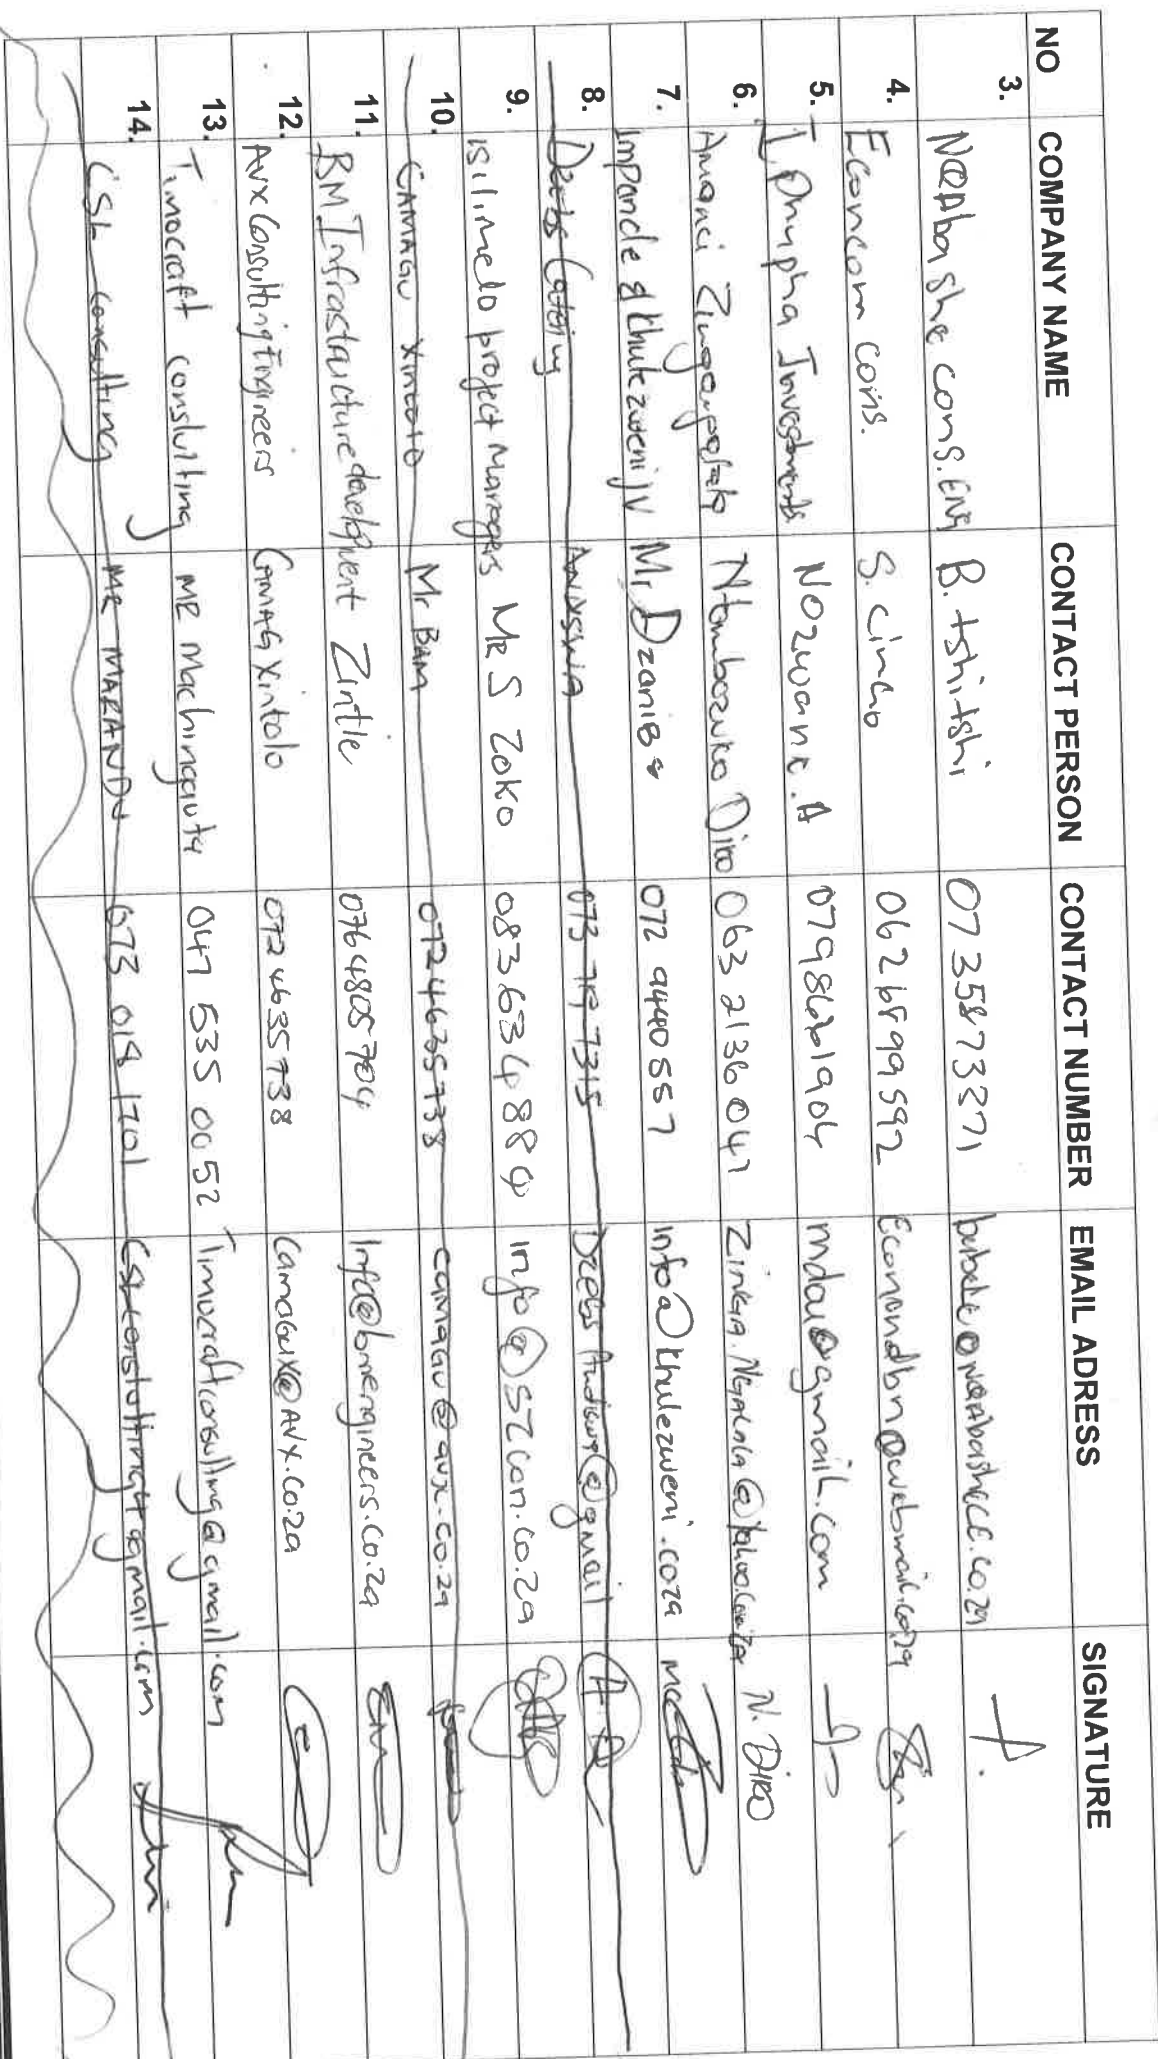 NO COMPANY NAME CONTACT PERSON CONTACT NUMBER EMAIL ADRESS SIGNATURE
3. NQABashe cons. ENG B. tshitshi 0735873371
4. Econcom cons. S. cincio 0626899592
5. Iphupha Investments Nozuwane. A 0798661904 mdau@gmail.com
6. Amanci Zingaupfafa Ntombozuko Diko 063 2136 047 N. DIKO
7. Impande & Khulezweni JV Mr Dzanibe 072 9440557 info@khulezweni.co.za
8. Deebs Catering ANDISWA 073 719 7315 @gmail A.D
9. isilimelo project Managers MR S Zoko 083 634 8840 info@szcon.co.za
10. CAMAGU Xintolo Mr BAM 0724635738 camagu@avx.co.za
11. BM Infrastructure development Zintle 0764805704 Info@bmengineers.co.za
12. AVX Consulting Engineers CAMAG Xintolo 0724635738 Camagux@AVX.co.za
13. Timocraft consulting MR Machingauta 047 535 0052 Timocraftconsulting@gmail.com
14. CSL consulting MR MARANDU 073 018 1701